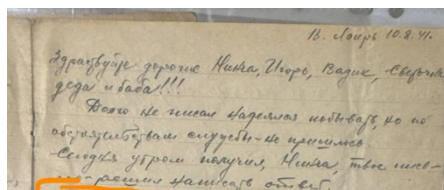 10.8.41.
Здравствуйте дорогие Нина, Игорь, Вадик,
деда и баба!!!
Долго не писал надеялся побывать, но по
обстоятельствам службы - не пришлось
Сегодня утром получил, Нина, твое пись-
мо решил написать ответ.